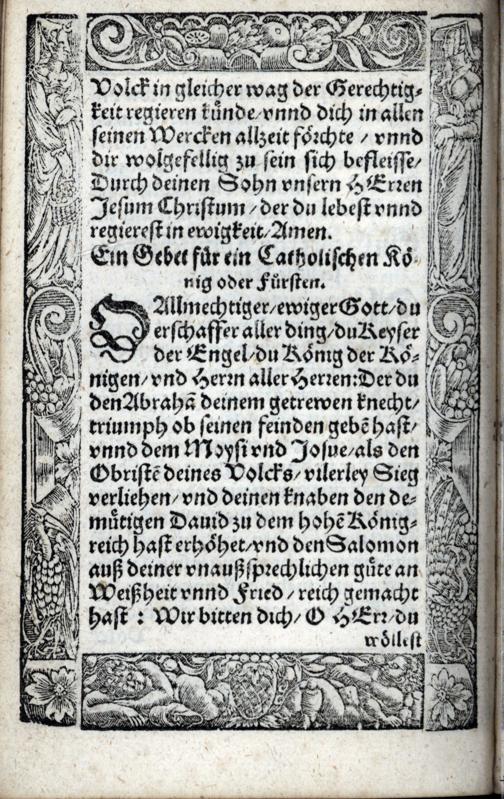 Volck in gleicher wag der Gerechtig-
keit regieren künde/vnnd dich in allen
seinen Wercken allzeit förchte / vnnd
dir wolgefellig zu sein sich befleisse/
Durch deinen Sohn vnsern HErren
Jesum Christum / der du lebest vnnd
regierest in ewigkeit/Amen.
Ein Gebet für ein Catholischen Kö-
nig oder Fürsten.
O Allmechtiger/ewiger Gott/du
erschaffer aller ding/du Keyser
der Engel/du König der Kö-
nigen/vnd Herrn aller Herren:Der du
den Abrahā deinem getrewen knecht/
triumph ob seinen feinden gebē hast/
vnnd dem Moysi vnd Josue/als den
Obristē deines Volcks/vilerley Sieg
verliehen/vnd deinen knaben den de-
mütigen Dauid zu dem hohē König-
reich hast erhöhet/vnd den Salomon
auß deiner vnaußsprechlichen güte an
Weißheit vnnd Fried/reich gemacht
hast : Wir bitten dich/O HErr/du
wölest